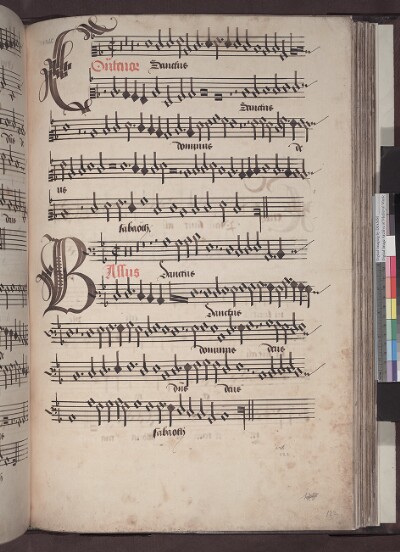 Contratenor Sanctus
Sanctus
dominus de
us
sabaoth
Bassus Sanctus
Sanctus
dominus deus
dns deus
sabaoth